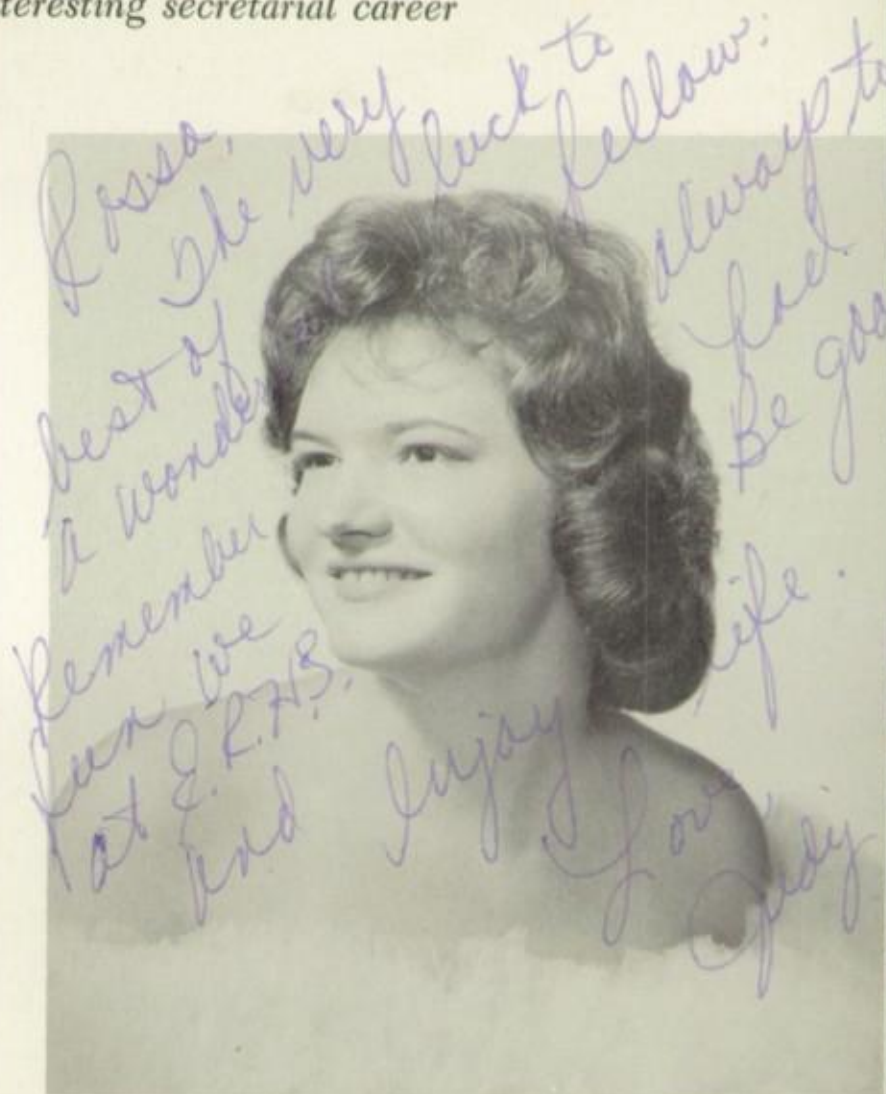 teresting secretarial career
Rossa,
The very
best of luck to
a wonderful fellow:
Remember always
fun we had
at E.R.H.S. Be goo
and Enjoy life.
Love,
Judy